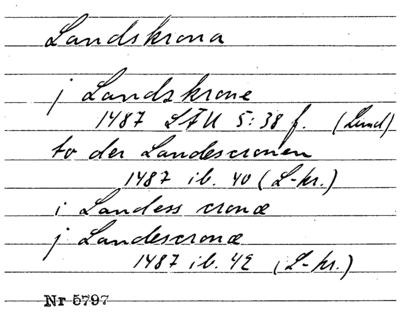 Landskrona
j Landzkrone
1487 LFU 5:38 f. (Lund)
to der Landescronen
1487 ib. 40 (L-kr.)
i Landess cronæ
j Landescronæ
1487 ib. 42 (L-kr.)
Nr 5797